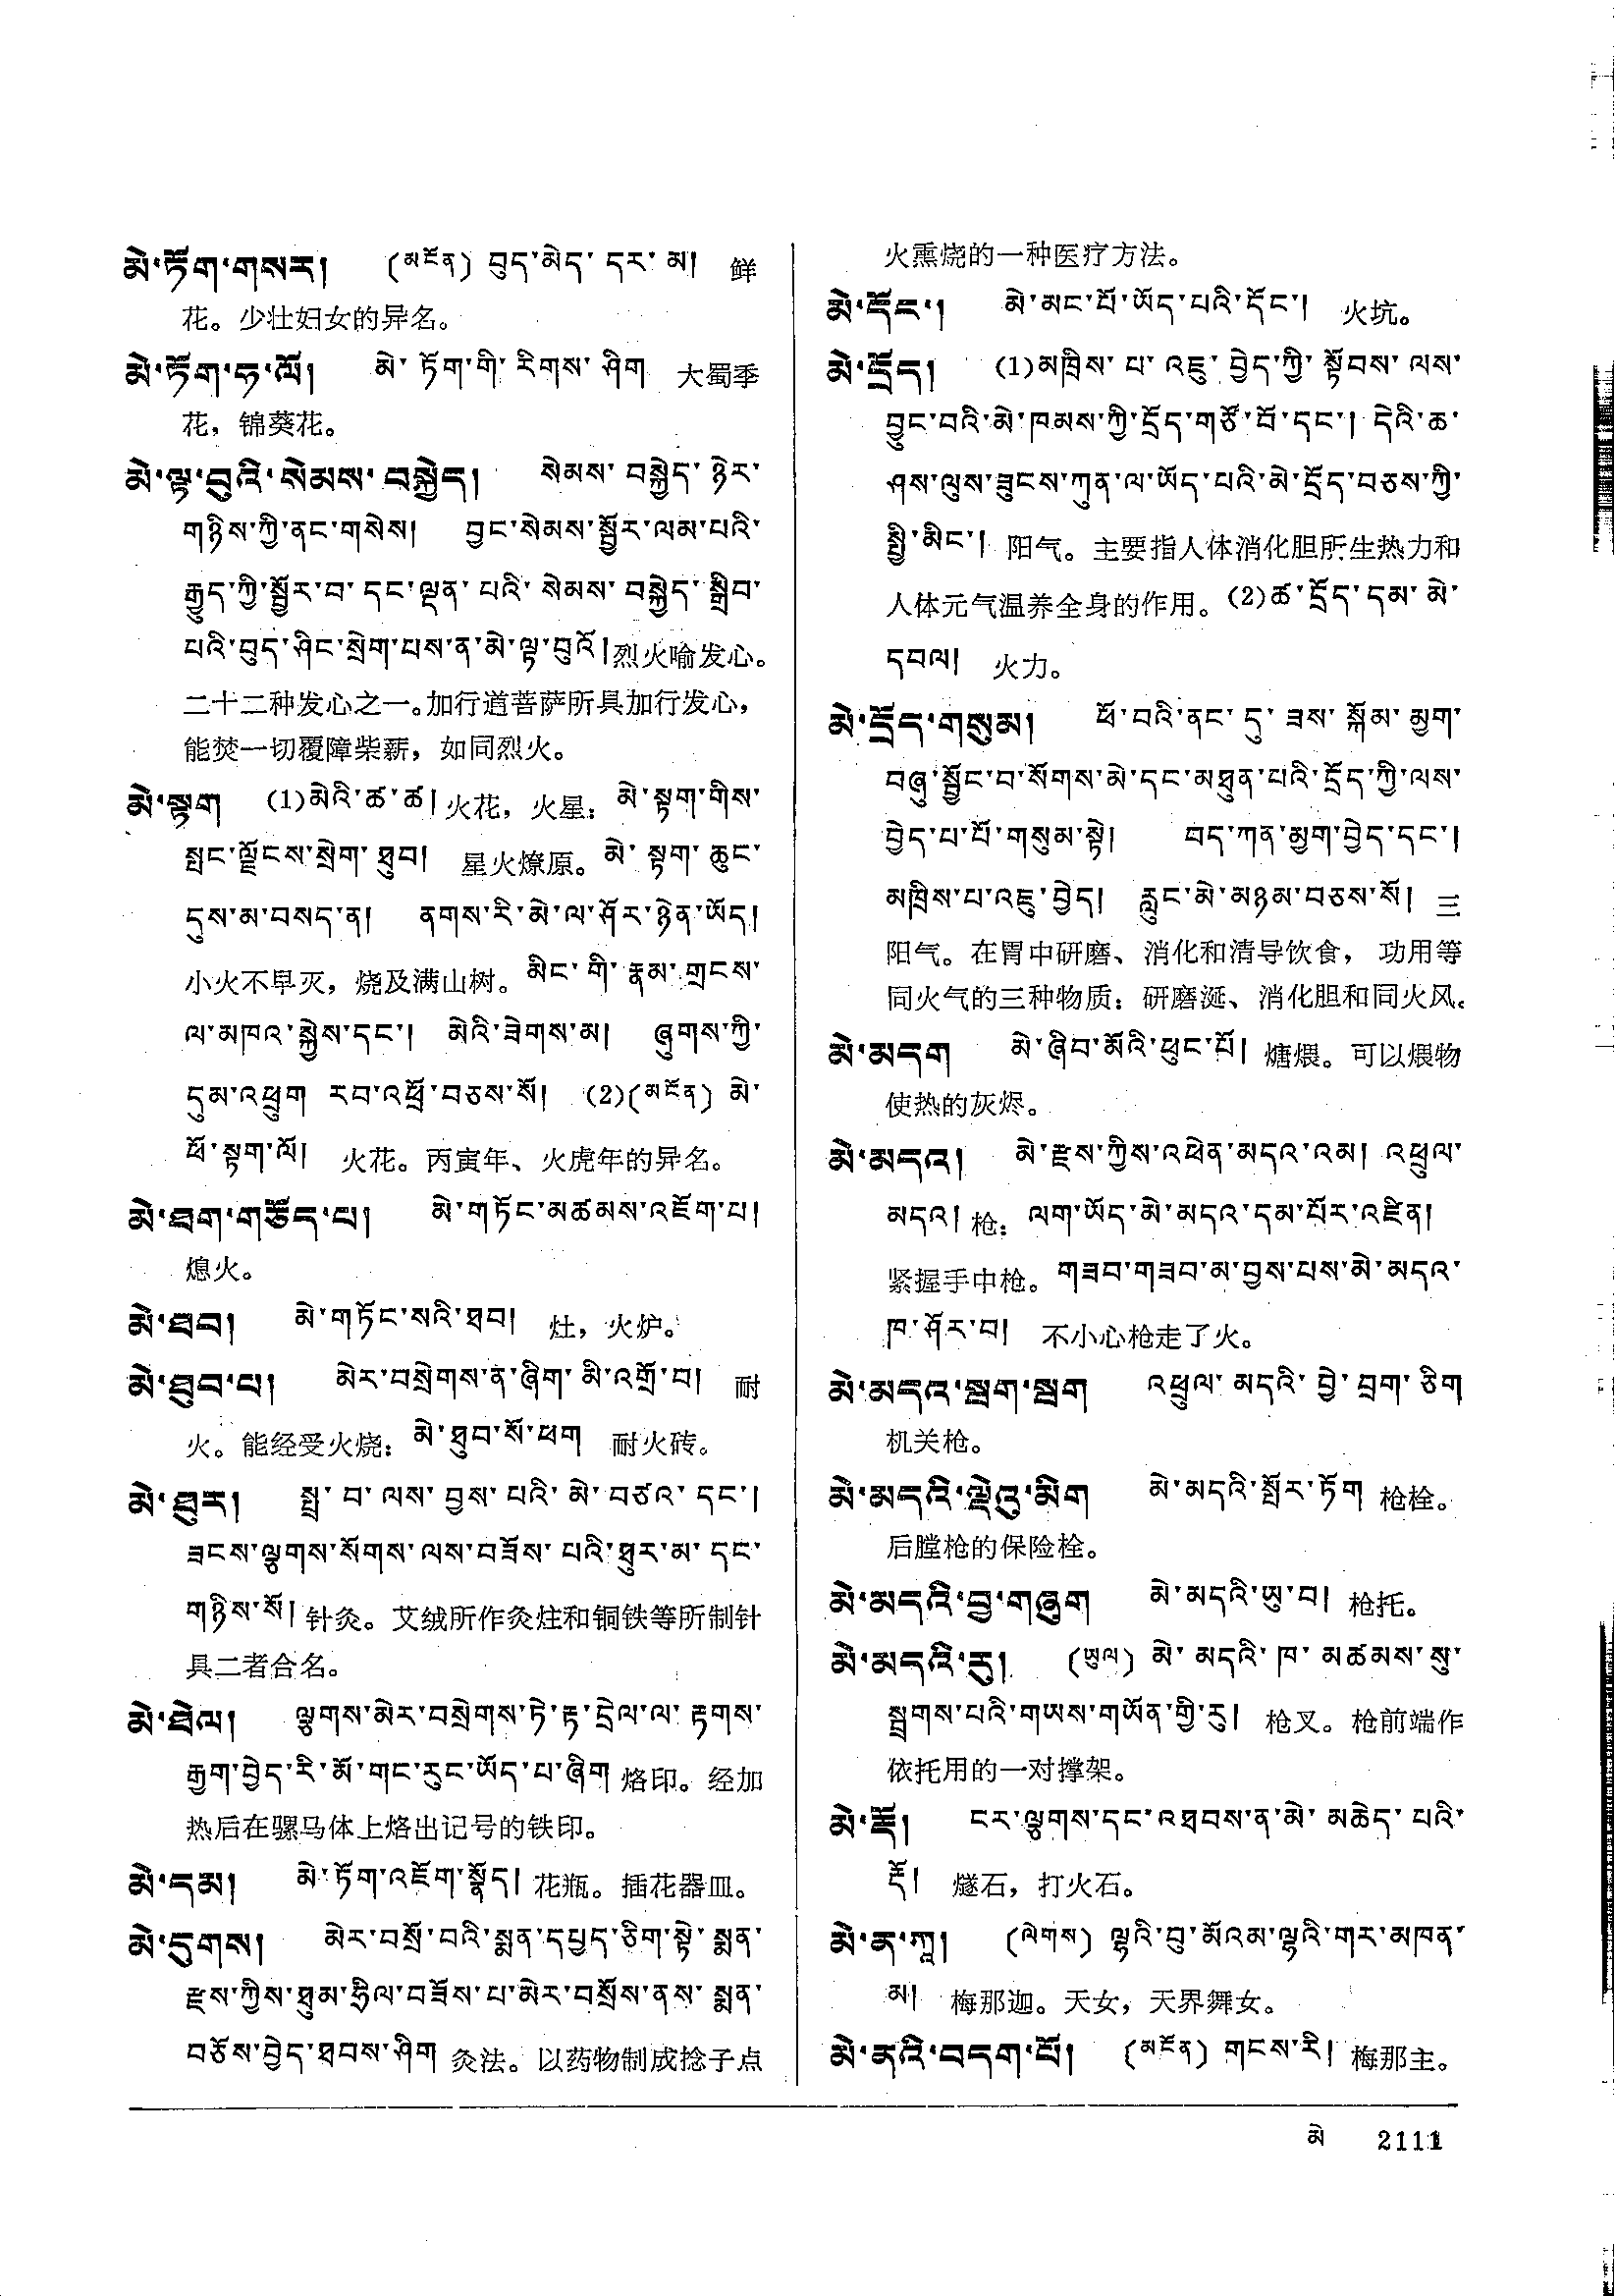 མེ་ཏོག་གསར། (མངོན) བུད་མེད་དར་མ། 鲜
花。少壮妇女的异名。
མེ་ཏོག་ཧ་ལོ། མེ་ཏོག་གི་རིགས་ཤིག 大蜀季
花，锦葵花。
མེ་ལྟ་བུའི་སེམས་བསྐྱེད། སེམས་བསྐྱེད་ཉེར་
གཉིས་ཀྱི་ནང་གསེས། བྱང་སེམས་སྦྱོར་ལམ་པའི་
རྒྱུད་ཀྱི་སྦྱོར་བ་དང་ལྡན་པའི་སེམས་བསྐྱེད་སྒྲིབ་
པའི་བུད་ཤིང་སྲེག་པས་ན་མེ་ལྟ་བུའོ། 烈火喻发心。
二十二种发心之一。加行道菩萨所具加行发心，
能焚一切覆障柴薪，如同烈火。
མེ་སྟག (1)མེའི་ཚ་ཚ། 火花，火星：མེ་སྟག་གིས་
སྤང་ལྗོངས་སྲེག་ཐུབ། 星火燎原。མེ་སྟག་ཆུང་
དུས་མ་བསད་ན། ནགས་རི་མེ་ལ་ཤོར་ཉེན་ཡོད།
小火不早灭，烧及满山树。མིང་གི་རྣམ་གྲངས་
ལ་མཁའ་སྐྱེས་དང་། མེའི་ཟེགས་མ། ཞུགས་ཀྱི་
དུམ་འཕྲུག རབ་འཕྲོ་བཅས་སོ། (2)(མངོན) མེ་
ཕོ་སྟག་ལོ། 火花。丙寅年、火虎年的异名。
མེ་ཐག་གཅོད་པ། མེ་གཏོང་མཚམས་འཇོག་པ།
熄火。
མེ་ཐབ། མེ་གཏོང་སའི་ཐབ། 灶，火炉。
མེ་ཐུབ་པ། མེར་བསྲེགས་ན་ཞིག་མི་འགྲོ་བ། 耐
火。能经受火烧：མེ་ཐུབ་སོ་ཕག 耐火砖。
མེ་ཐུར། སྤྲ་བ་ལས་བྱས་པའི་མེ་བཙའ་དང་།
ཟངས་ལྕགས་སོགས་ལས་བཟོས་པའི་ཐུར་མ་དང་
གཉིས་སོ། 针灸。艾绒所作灸炷和铜铁等所制针
具二者合名。
མེ་ཐེལ། ལྕགས་མེར་བསྲེགས་ཏེ་རྟ་དྲེལ་ལ་རྟགས་
རྒྱག་བྱེད་རི་མོ་གང་རུང་ཡོད་པ་ཞིག 烙印。经加
热后在骡马体上烙出记号的铁印。
མེ་དམ། མེ་ཏོག་འཇོག་སྣོད། 花瓶。插花器皿。
མེ་དུགས། མེར་བསྲོ་བའི་སྨན་དཔྱད་ཅིག་སྟེ་སྨན་
རྫས་ཀྱིས་ཐུམ་ཧྲིལ་བཟོས་པ་མེར་བསྲོས་ནས་སྨན་
བཅོས་བྱེད་ཐབས་ཤིག 灸法。以药物制成捻子点
火熏烧的一种医疗方法。
མེ་དོང་། མེ་མང་པོ་ཡོད་པའི་དོང་། 火坑。
མེ་དྲོད། (1)མཁྲིས་པ་འཇུ་བྱེད་ཀྱི་སྟོབས་ལས་
བྱུང་བའི་མེ་ཁམས་ཀྱི་དྲོད་གཙོ་བོ་དང་། དེའི་ཆ་
ཤས་ལུས་ཟུངས་ཀུན་ལ་ཡོད་པའི་མེ་དྲོད་བཅས་ཀྱི་
སྤྱི་མིང་། 阳气。主要指人体消化胆所生热力和
人体元气温养全身的作用。(2)ཚ་དྲོད་དམ་མེ་
དབལ། 火力。
མེ་དྲོད་གསུམ། ཕོ་བའི་ནང་དུ་ཟས་སྐོམ་མྱག་
བཞུ་སྦྱོང་བ་སོགས་མེ་དང་མཐུན་པའི་དྲོད་ཀྱི་ལས་
བྱེད་པ་པོ་གསུམ་སྟེ། བད་ཀན་མྱག་བྱེད་དང་།
མཁྲིས་པ་འཇུ་བྱེད། རླུང་མེ་མཉམ་བཅས་སོ། 三
阳气。在胃中研磨、消化和清导饮食，功用等
同火气的三种物质：研磨涎、消化胆和同火风。
མེ་མདག མེ་ཞིབ་མོའི་ཕུང་པོ། 煻煨。可以煨物
使热的灰烬。
མེ་མདའ། མེ་རྫས་ཀྱིས་འཕེན་མདའ་འམ། འཕྲུལ་
མདའ། 枪：ལག་ཡོད་མེ་མདའ་དམ་པོར་འཛིན།
紧握手中枪。གཟབ་གཟབ་མ་བྱས་པས་མེ་མདའ་
ཁ་ཤོར་བ། 不小心枪走了火。
མེ་མདའ་སྦག་སྦག འཕྲུལ་མདའི་བྱེ་བྲག་ཅིག
机关枪。
མེ་མདའི་ལྡེའུ་མིག མེ་མདའི་སྤོར་ཏོག 枪栓。
后膛枪的保险栓。
མེ་མདའི་བྱ་གཞུག མེ་མདའི་ཡུ་བ། 枪托。
མེ་མདའི་རུ། (ཡུལ) མེ་མདའི་ཁ་མཚམས་སུ་
སྦྲགས་པའི་གཡས་གཡོན་གྱི་རུ། 枪叉。枪前端作
依托用的一对撑架。
མེ་རྡོ། ངར་ལྕགས་དང་འཐབས་ན་མེ་མཆེད་པའི་
རྡོ། 燧石，打火石。
མེ་ན་ཀཱ། (ལེགས) ལྷའི་བུ་མོའམ་ལྷའི་གར་མཁན་
མ། 梅那迦。天女，天界舞女。
མེ་ནའི་བདག་པོ། (མངོན) གངས་རི། 梅那主。
མེ 2111